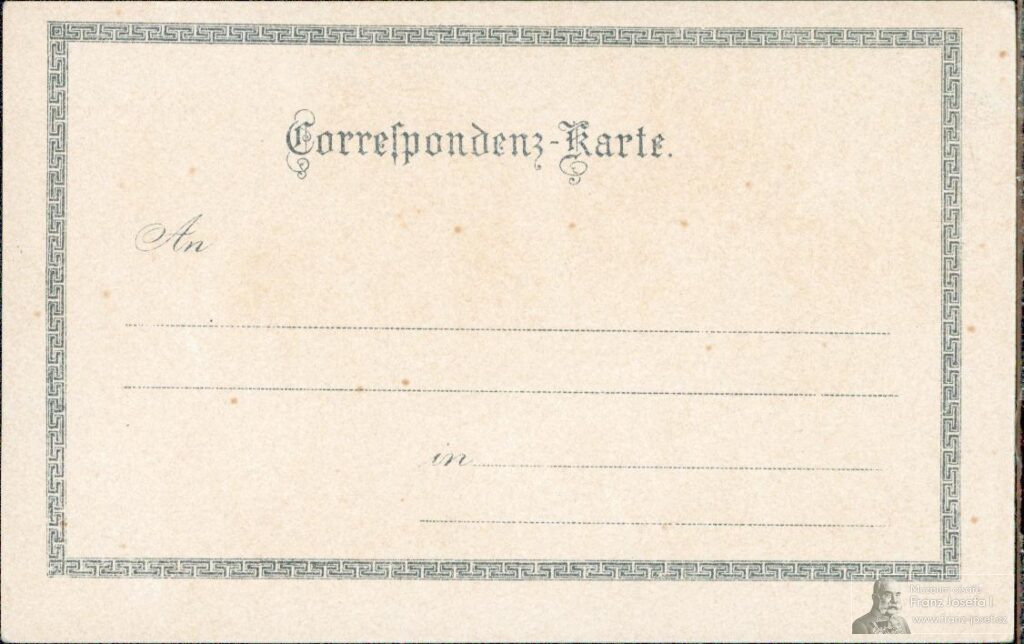 Correſpondenz-Karte.
An
in
Muzeum císaře
Franz Josefa I.
www.franz-josef.cz